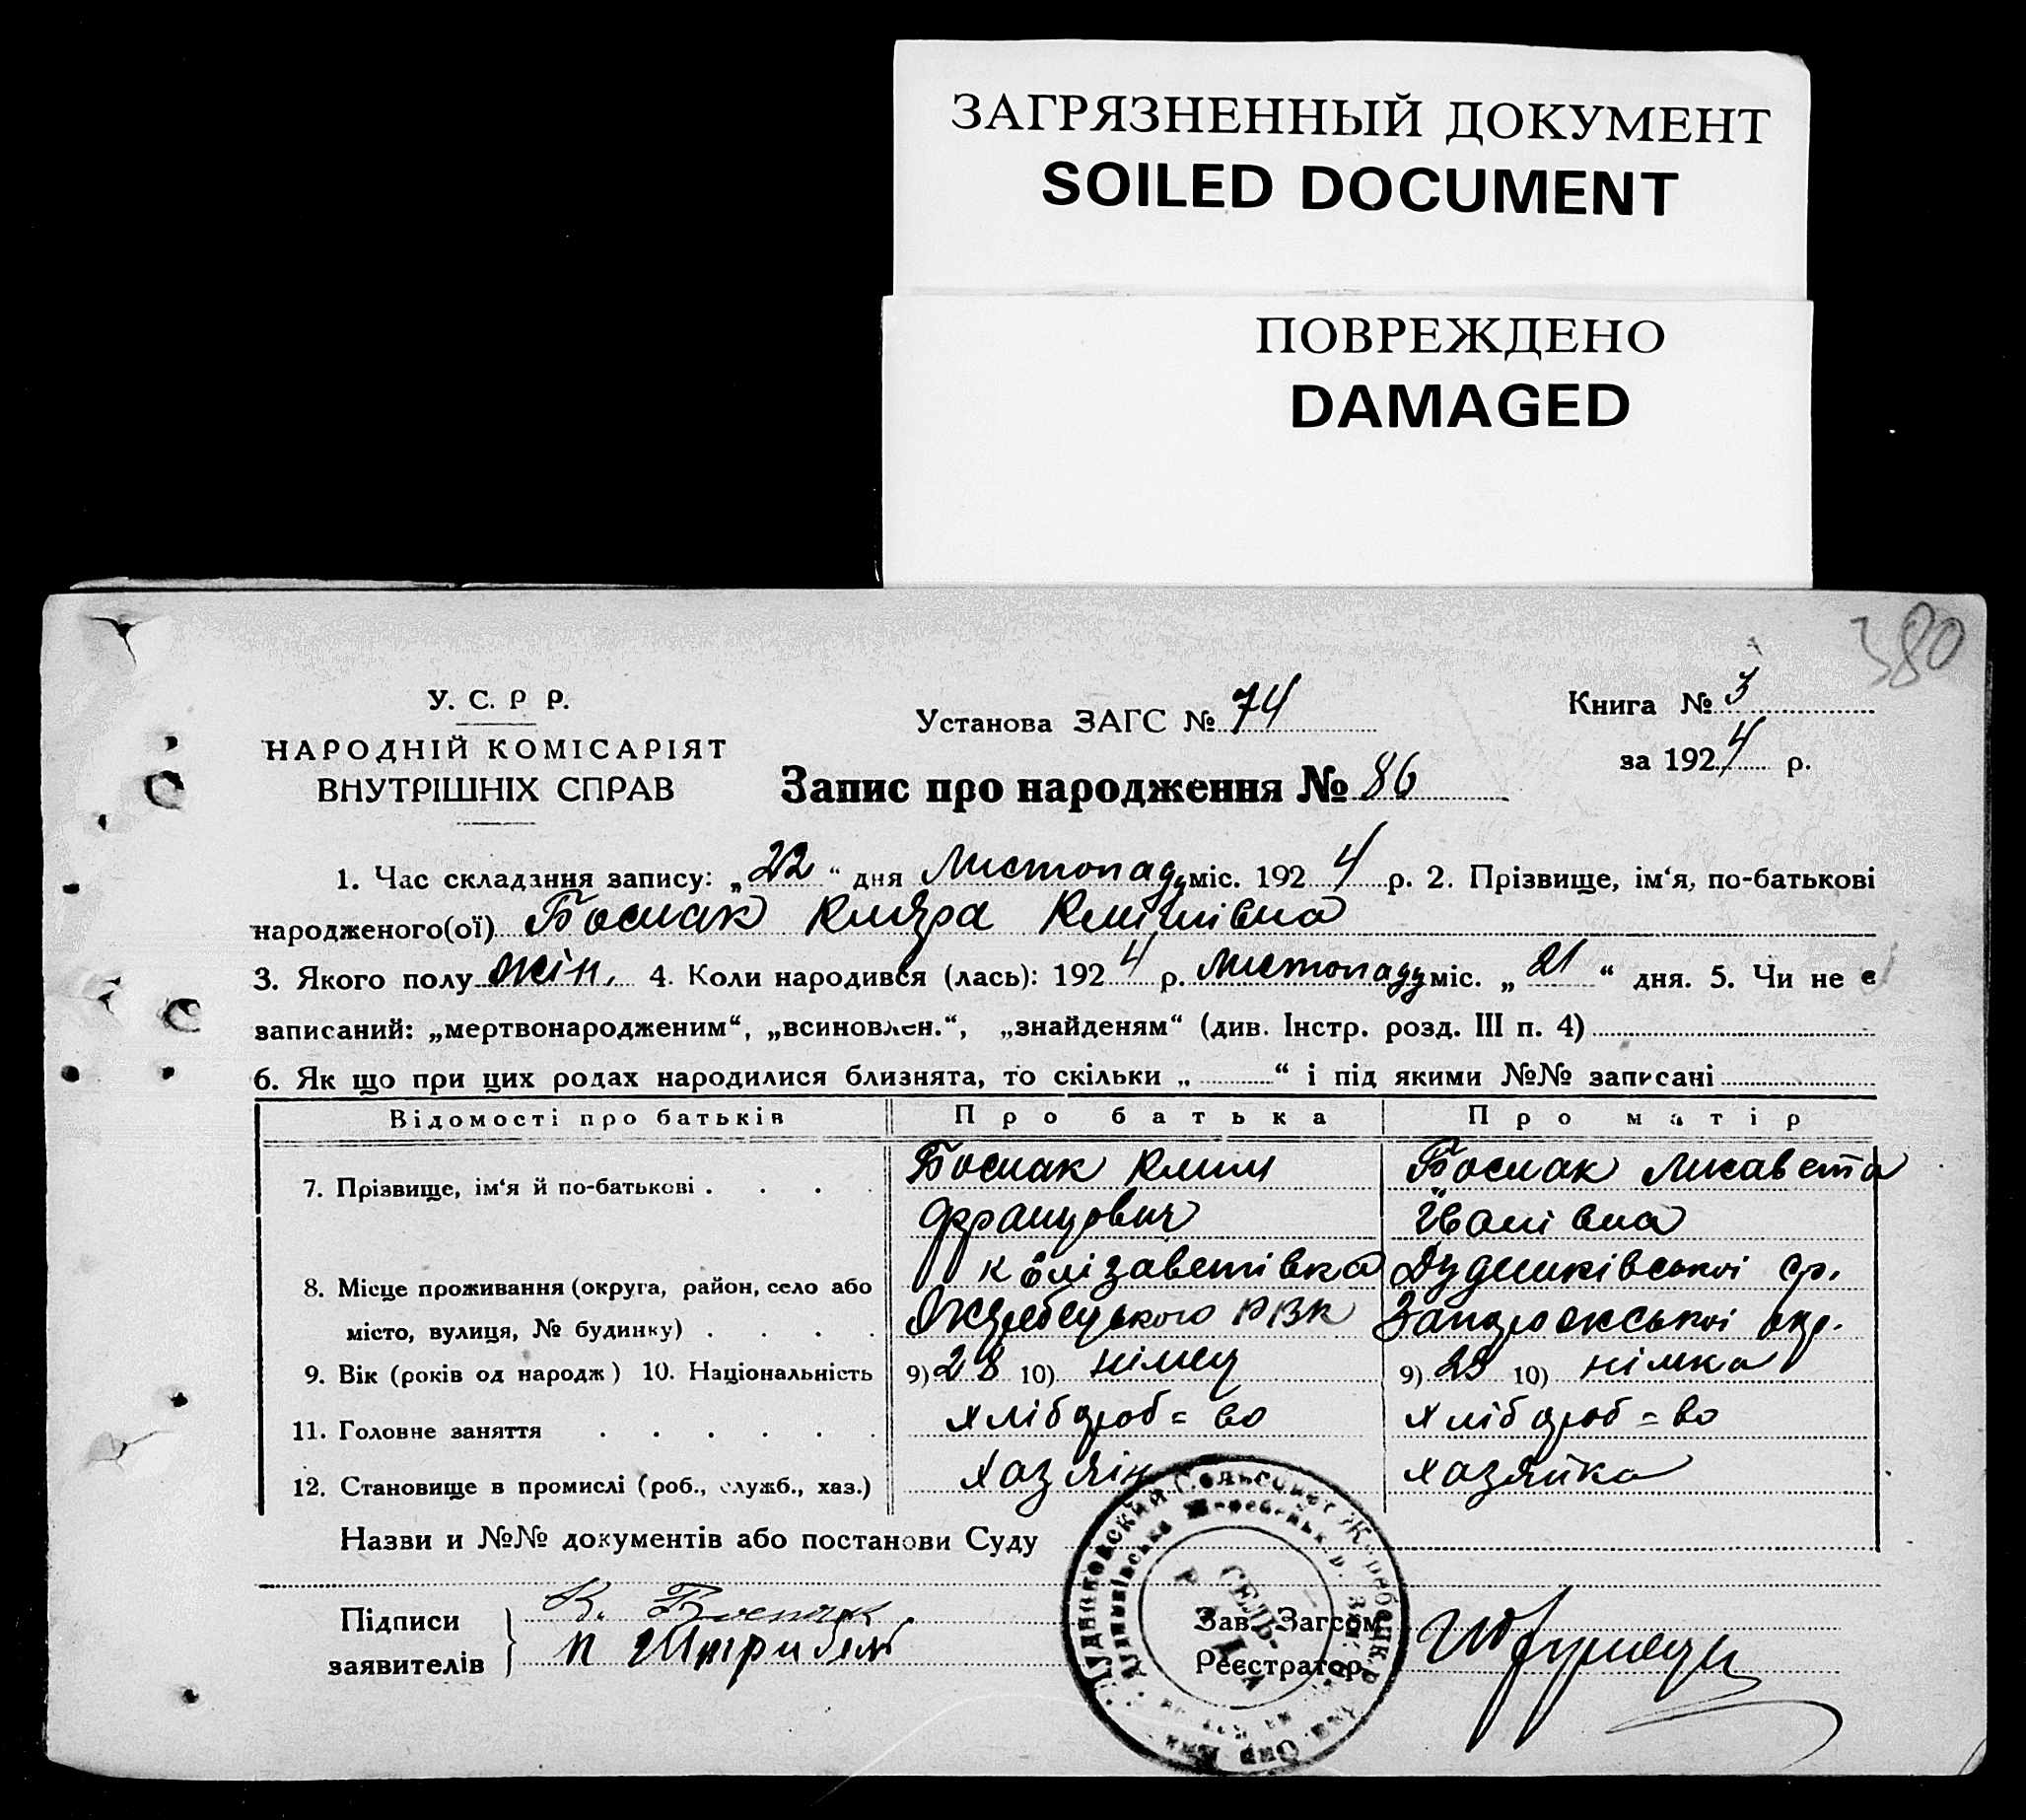 ЗАГРЯЗНЕННЫЙ ДОКУМЕНТ
SOILED DOCUMENT
ПОВРЕЖДЕНО
DAMAGED
380
У. С. Р Р.
НАРОДНІЙ КОМІСАРІЯТ
ВНУТРІШНІХ СПРАВ
Установа ЗАГС № 74
Книга № 3
за 1924 р.
Запис про народження № 86
1. Час складання запису: „22“ дня Листопаду міс. 1924 р. 2. Прізвище, ім‘я, по-батькові
народженого(ої) Босмак Кляра Клімівна
3. Якого полу жін. 4. Коли народився (лась): 1924 р. Листопаду міс. „21“ дня. 5. Чи не є
записаний: „мертвонародженим“, „всиновлен.“, „знайденям“ (див. Інстр. розд. III п. 4)
6. Як що при цих родах народилися близнята, то скільки „ “ і під якими №№ записані
Відомості про батьків Про батька Про матір
7. Прізвище, ім‘я й по-батькові . . . . Босмак Клим Босмак Лисавета
Францович Іванівна
8. Місце проживання (округа, район, село або к Єлізаветівка
місто, вулиця, № будинку) . . . . Жеребецького РВК Запорожської окр.
9. Вік (років од народж) 10. Національність 9) 28 10) німец 9) 23 10) німка
11. Головне заняття . . . . . . хлібороб=во хлібороб=во
12. Становище в промислі (роб., служб., хаз.) хазяін хазяйка
Назви и №№ документів або постанови Суду
Підписи К. Босмак Зав. Загсом
заявителів п Реєстратор